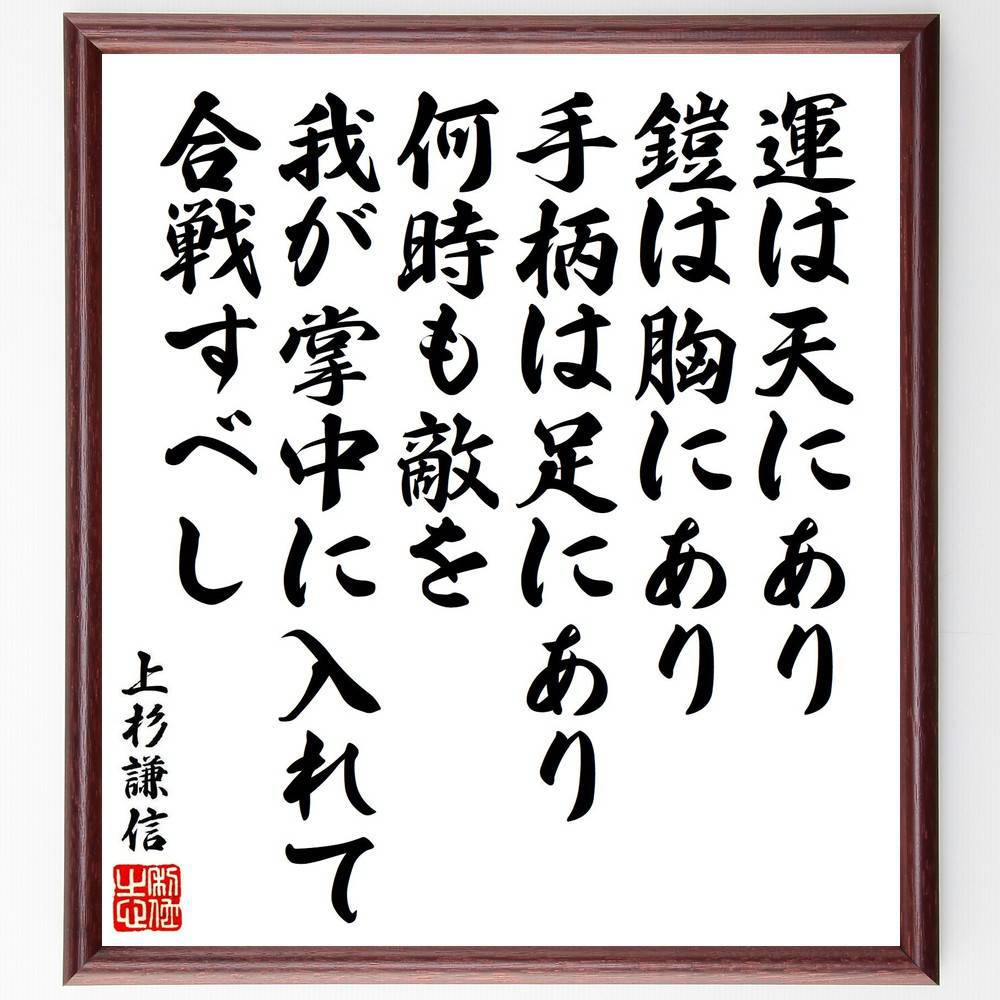 運は天にあり
鎧は胸にあり
手柄は足にあり
何時も敵を
我が掌中に入れて
合戦すべし
上杉謙信